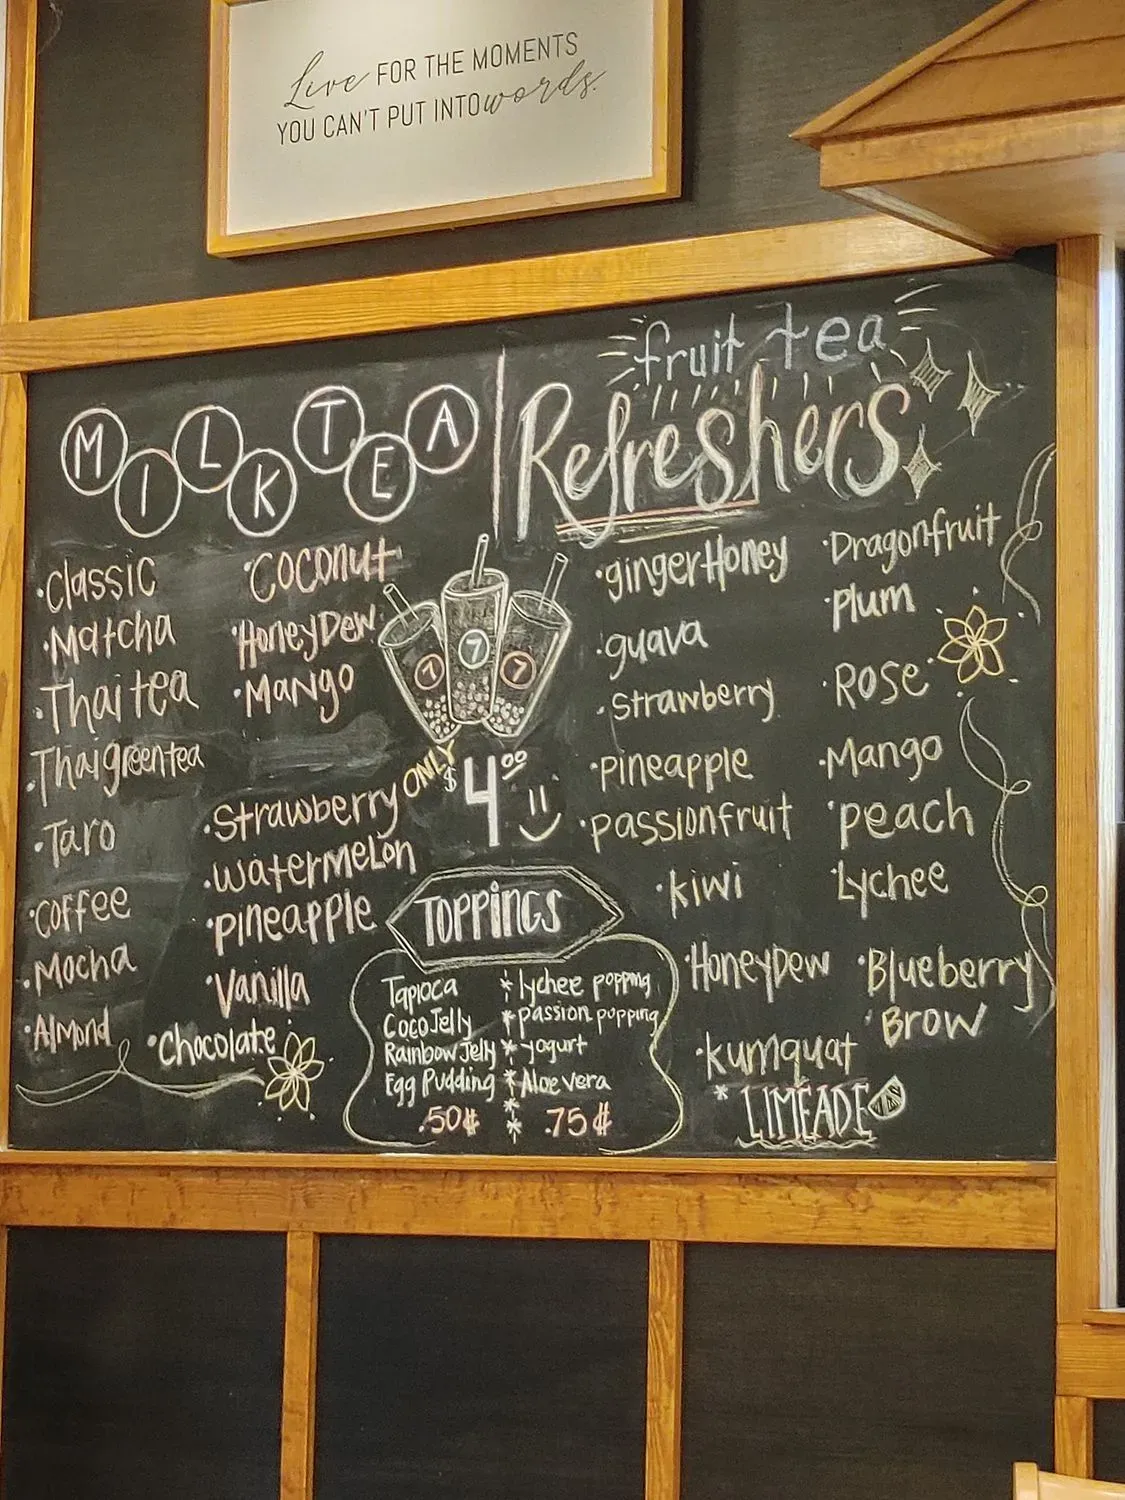 Live FOR THE MOMENTS
YOU CAN'T PUT INTO words.
MILK TEA
·Classic
·Matcha
·Thai tea
·Thai green tea
·Taro
·Coffee
·Mocha
·Almond
·Coconut
·HoneyDew
·Mango
·Strawberry
·Watermelon
·Pineapple
·Vanilla
·Chocolate
7 7 7
ONLY
$4.00
TOPPINGS
Tapioca
Coco Jelly
Rainbow Jelly
Egg Pudding
.50¢
* lychee popping
* passion popping
* yogurt
* Aloe vera
* .75¢
fruit tea
Refreshers
·ginger Honey
·guava
·Strawberry
·Pineapple
·passionfruit
·kiwi
·HoneyDew
·kumquat
* LIMEADE
·Dragonfruit
·Plum
·Rose
·Mango
·peach
·Lychee
·Blueberry
·Brow